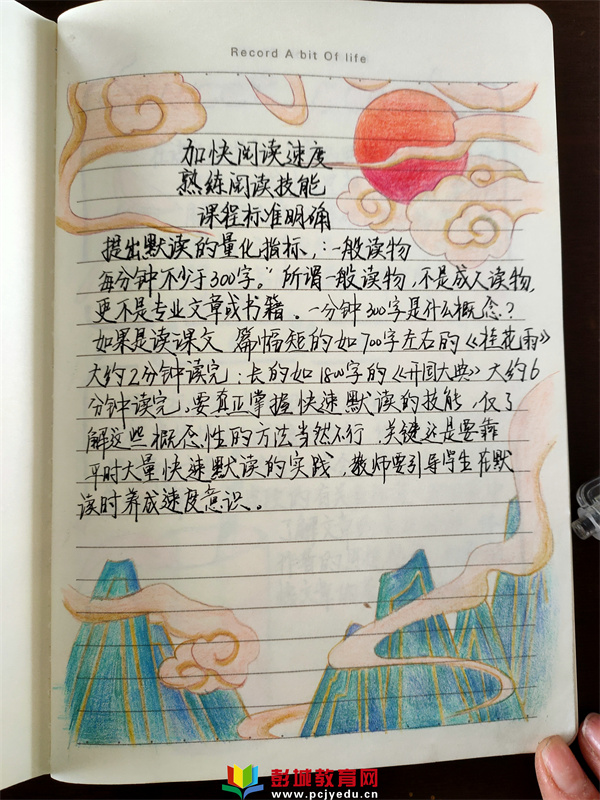 Record A bit Of life
加快阅读速度
熟练阅读技能
课程标准明确
提出默读的量化指标,:一般读物
每分钟不少于300字。"所谓一般读物,不是成人读物,
更不是专业文章或书籍。一分钟300字是什么概念?
如果是读课文 篇幅短的如700字左右的《桂花雨》
大约2分钟读完;长的如1800字的《开国大典》大约6
分钟读完。要真正掌握快速默读的技能,仅了
解这些概念性的方法当然不行,关键还是要靠
平时大量快速默读的实践,教师要引导学生在默
读时养成速度意识。
彭城教育网
www.pcjyedu.cn